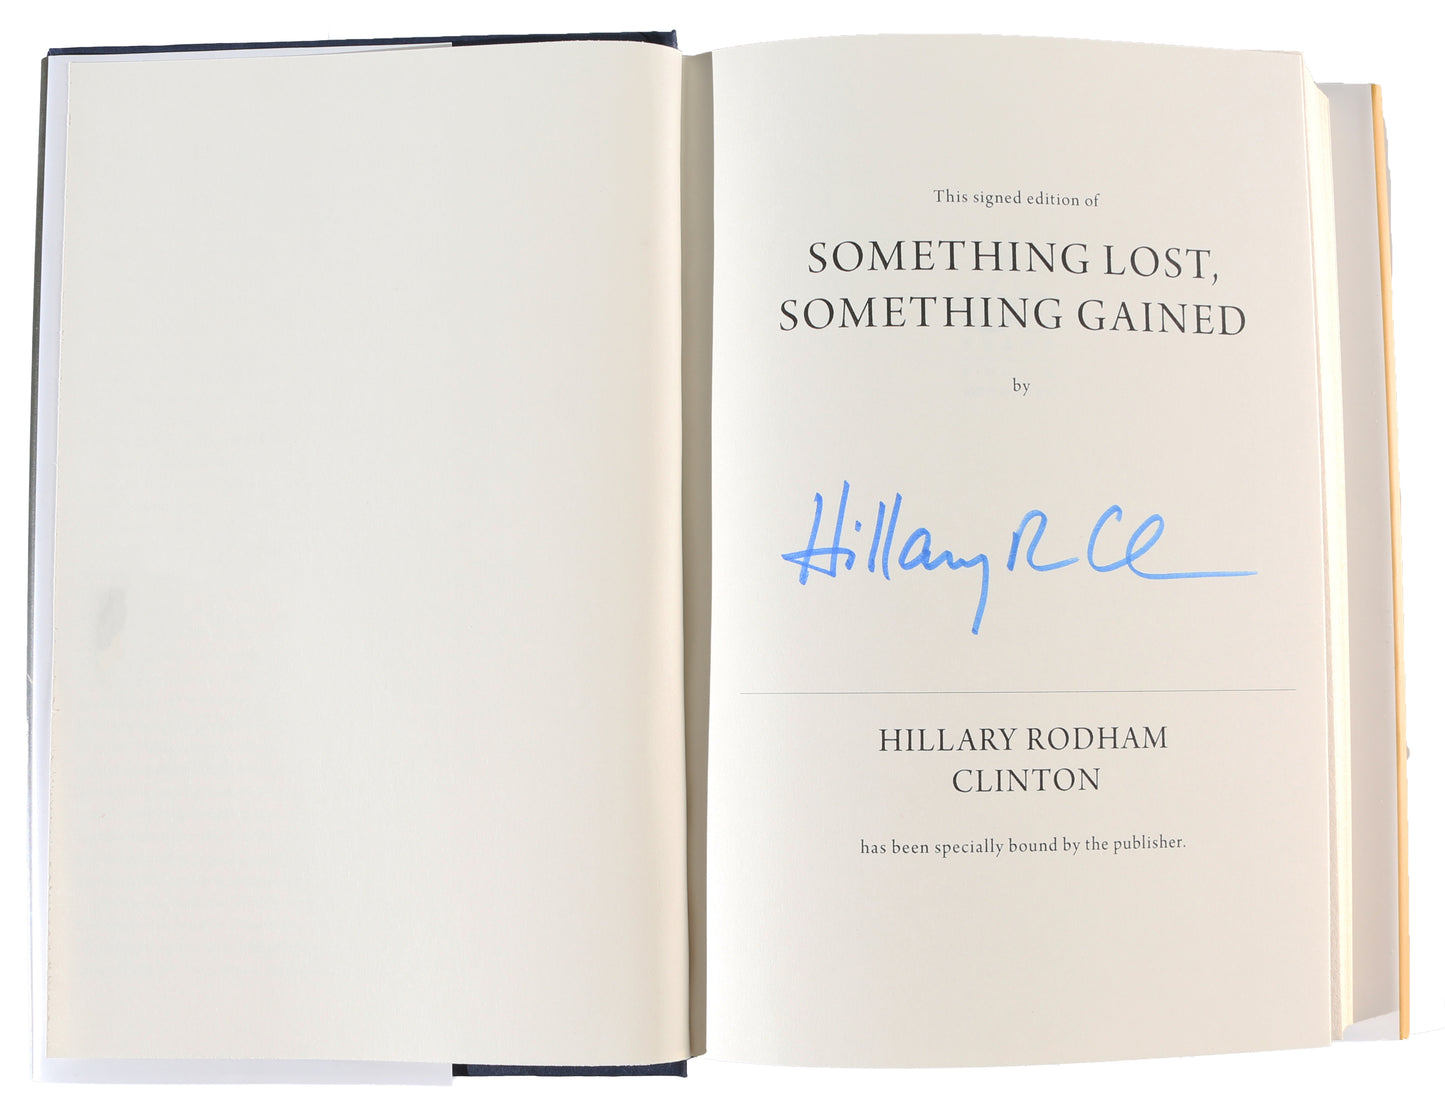 This signed edition of
SOMETHING LOST,
SOMETHING GAINED
by
Hillary R Cl
HILLARY RODHAM
CLINTON
has been specially bound by the publisher.